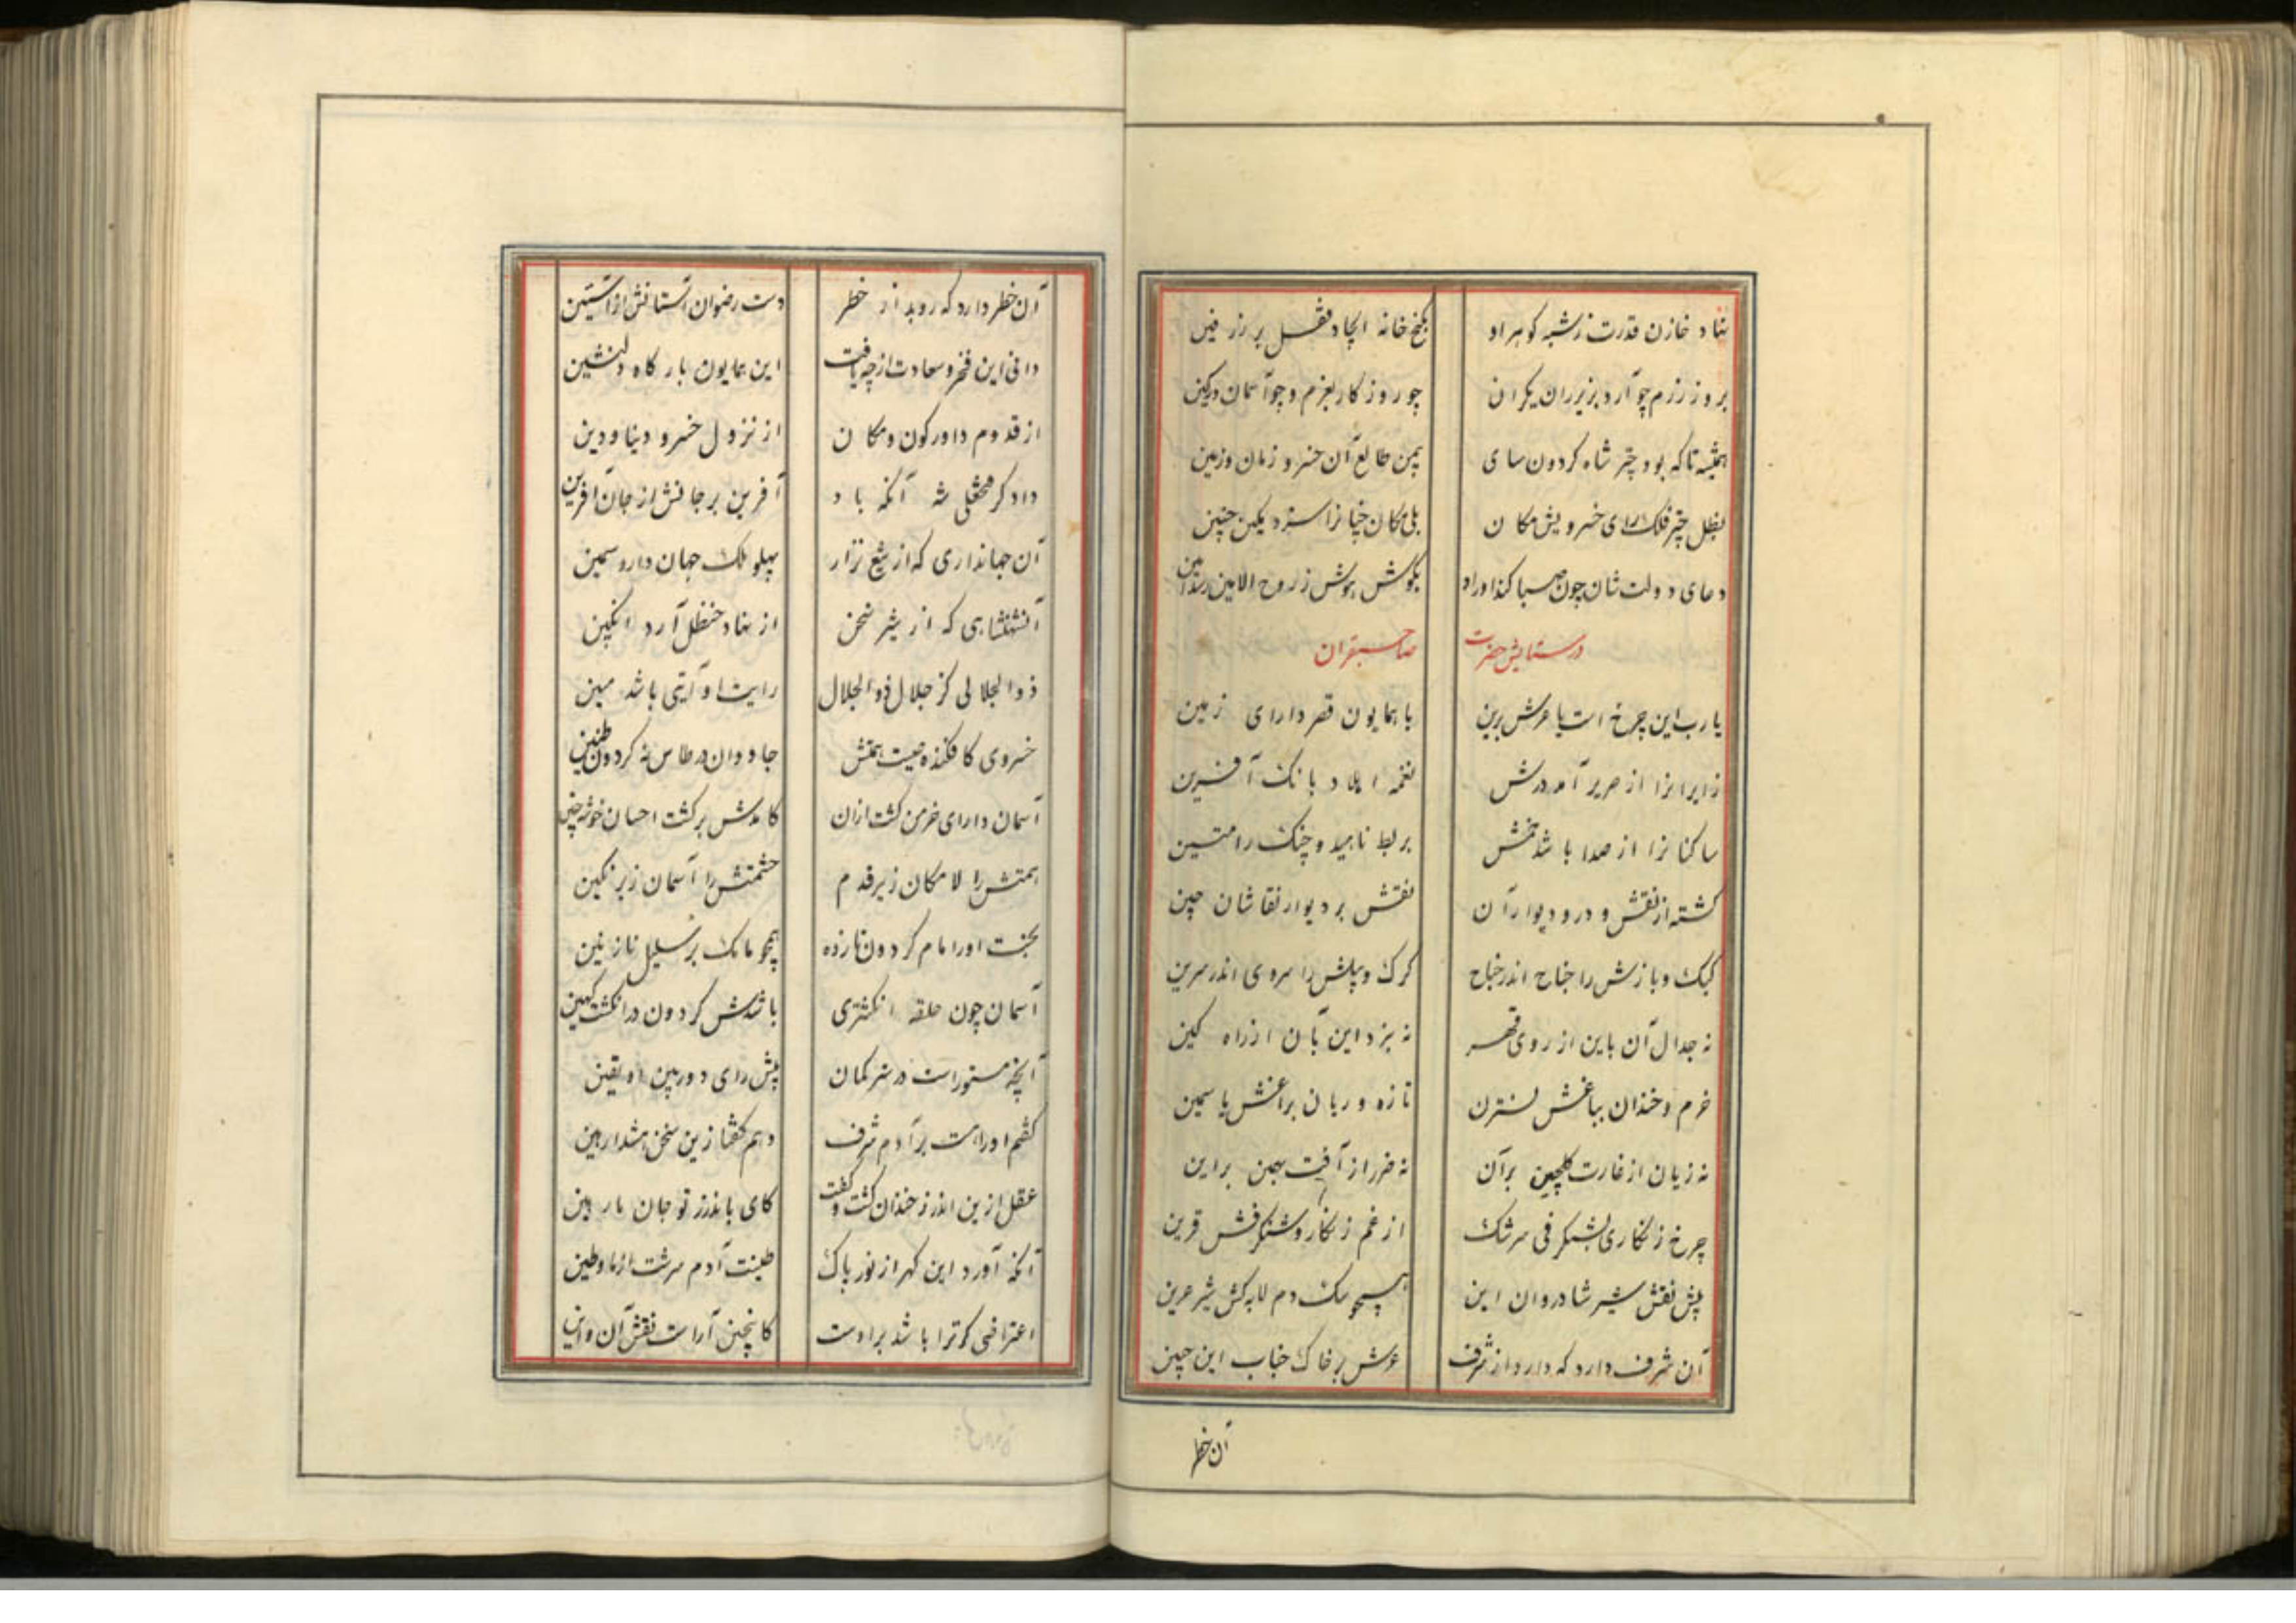 نهاد خازن قدرت ز شبه گوهر او بگنج خانه ایجاد قفل بر زرفین
بروز رزم چو آرد بزیر ران یکران چو روزگار بعزم و چو آسمان در کین
همیشه تا که بود چتر شاه گردون سای بیمن طالع آن خسرو زمان و زمین
بظل چتر فلک رای خسرویش مکان بلی مکان چنانرا سزد یکین چنین
دعای دولت شان چون صبا کند اوراد بگوش هوش ز روح الامین رسد آمین
در ستایش حضرت صاحبقران
یا رب این چرخ است یا عرش برین یا همایون قصر دارای زمین
زایرانرا از صریر آمد درش نغمه اهلا و بانگ آفرین
ساکنانرا از صدا باشد بربط ناهید و چنگ رامتین
گشته از نقش و در و دیوار آن نقش بر دیوار نقاشان چین
کبک و بازش را جناح اندر جناح گرگ و پلش را سروی اندر سرین
نه جدال آن باین از روی قهر نه نبرد این بآن از راه کین
خرم و خندان بباغش نسترن تازه و ریان براغش یاسمین
نه زیان از غارت گلچین بر آن نه ضرر از آفت بهمن بر این
چرخ زنگاری بشنگرفی سرشک از غم زنگار و شنگرفش قرین
پیش نقش شیر شادروان این همچو سگ دم لابه کش شیر عرین
آن شرف دارد که دارد از شرف عرش بر خاک جناب این جبین
آن خطر
آن خطر دارد که روبد از خطر دست رضوان آستانش ز آستین
دانی این فخر و سعادت از چه یافت این همایون بارگاه دلنشین
از قدوم داور کون و مکان از نزول خسرو دنیا و دین
دادگر فتحعلی شه آنکه باد آفرین بر جانش از جان آفرین
آن جهانداری که از تیغ نزار پهلو ملک جهان دارد سمین
آنشهنشاهی که از شیر سخن از نهاد حنظل آرد انگبین
ذوالجلالی کز جلال ذوالجلال رایت او آیتی باشد مبین
خسروی کافکنده صیت همتش جاودان در طاس نه گردون طنین
آسمان دارای خرمن گشت از آن کامدش بر کشت احسان خوشه چین
همتش را لامکان زیر قدم حشمتش را آسمان زیر نگین
بخت او را مام گردون نازده همچو مامک بر سلیل نازنین
آسمان چون حلقه انگشتری باشدش گردون در انگشت کهین
آنچه مستور است در ستر گمان پیش رای دوربین او یقین
گفتم او راهست بر آدم شرف وهم گفتا زین سخن هشدار هین
عقل ازین اندرز خندان گشت و گفت کای باندرز تو جان ما رهین
آنکه آورد این گهر از نور پاک طینت آدم سرشت از ما و طین
اعتراضی گر ترا باشد بر اوست کاینچنین آراست نقش آن و این